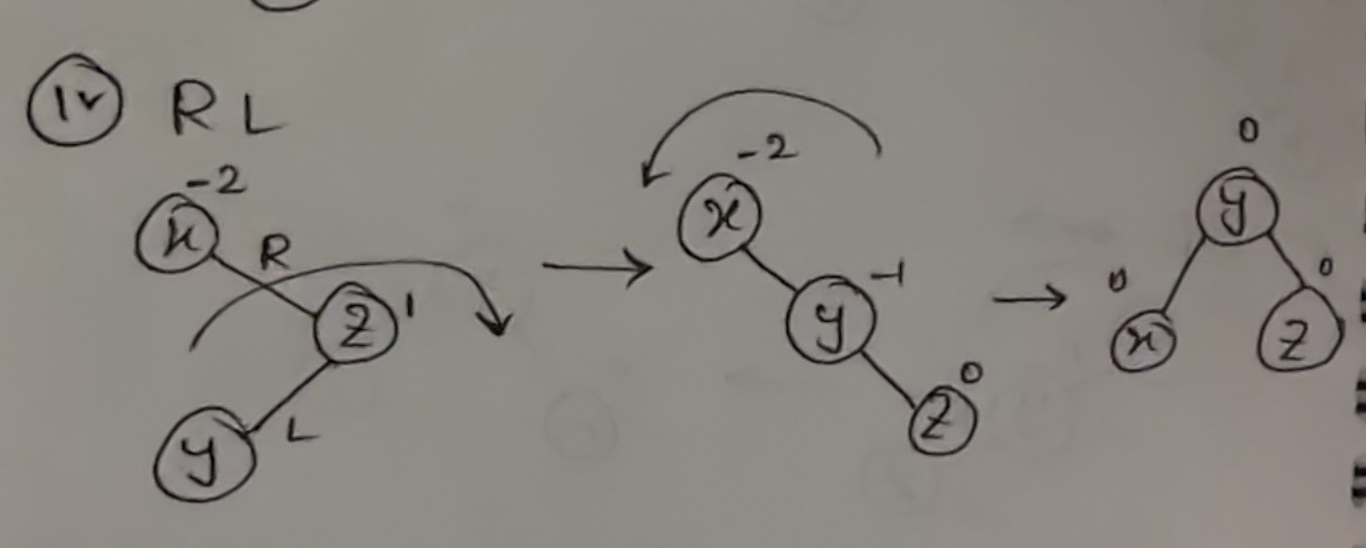 (iv) R L
-2
x
R
z 1
y L
-2
x
y -1
z 0
0
y
0
x
0
z